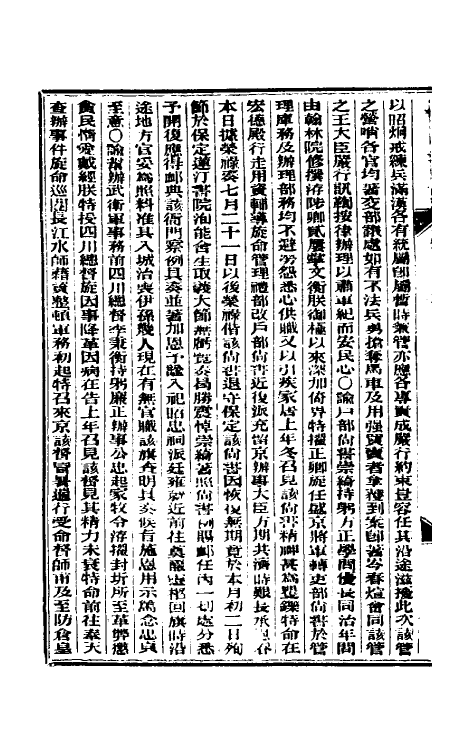 以昭炯戒練兵滿漢各有統屬即屬暫時兼管亦應各專責成嚴行約束豈容任其沿途滋擾此次該管
之營哨各官均著交部議處如有不法兵勇搶奪馬車及用強買賣者拿獲到案即著岑春煊會同該管
之王大臣嚴行訊鞫按律辦理以肅軍紀而安民心〇諭戶部尚書崇綺持躬方正學問優長同治年間
由翰林院修撰洊陟卿貳屢掌文衡朕御極以來深加倚畀特擢正卿旋任盛京將軍轉吏部尚書於管
理庫務及辦理部務均不避勞怨悉心供職又以引疾家居上年冬召見該尚書精神甚為矍鑠特命在
宏德殿行走用資輔導旋命管理禮部改戶部尚書近復派充留京辦事大臣方期共濟時艱長承恩眷
本日據榮祿奏七月二十一日以後榮祿偕該尚書退守保定該尚書因恢復無期竟於本月初二日殉
節於保定蓮汀書院洵能舍生取義大節無虧覽奏曷勝震悼崇綺著照尚書例賜卹任內一切處分悉
予開復應得卹典該衙門察例具奏並著加恩予諡入祀昭忠祠派廷雍就近前往奠醊靈柩回旗時沿
途地方官妥為照料准其入城治喪伊孫幾人現在有無官職該旗查明具奏候旨施恩用示篤念忠貞
至意〇諭幫辦武衛軍事務前四川總督李秉衡持躬嚴正辦事公忠起家牧令洊擢封圻所至革弊懲
貪民情愛戴經朕特授四川總督旋因事降革因病在告上年召見該督見其精力未衰特命前往奉天
查辦事件旋命巡閱長江水師藉資整頓軍務初起特召來京該督冒暑遄行受命督師甫及至防倉皇